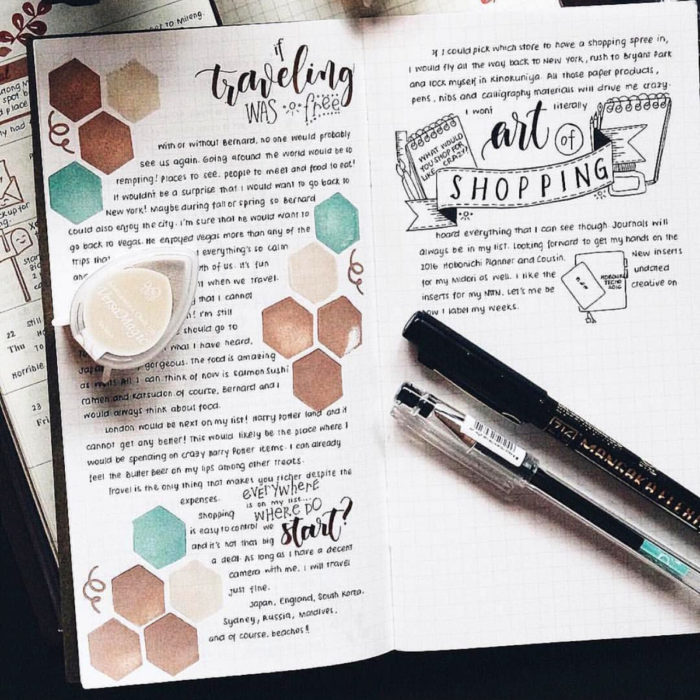 if
traveling
WAS free
With or without Bernard, no one would probably
see us again. Going around the world would be so
tempting! Places to see, people to meet and food to eat!
It wouldn't be a surprise that I would want to go back to
New York! Maybe during fall or spring so Bernard
could also enjoy the city. I'm sure that he would want to
go back to Vegas. He enjoyed Vegas more than any of the
trips that everything's so calm
and of us. It's fun
when we travel.
that I cannot
I'm still
should go to
what I have heard,
Japan gorgeous. The food is amazing
as well! All I can think of now is salmon sushi
ramen and katsudon of course. Bernard and I
would always think about food.
London would be next on my list! Harry Potter land and it
cannot get any better! This would likely be the place where I
would be spending on crazy Harry Poter items. I can already
feel the Butter Beer on my lips among other treats.
Travel is the only thing that makes you richer despite the
expenses.
EVERYWHERE
is on my list...
WHERE DO
start?
Shopping
is easy to control
and it's not that big
a deal. As long as I have a decent
camera with me, I will travel
just fine.
Japan, England, South Korea,
Sydney, Russia, Maldives,
and of course, beaches!
If I could pick which store to have a shopping spree in,
I would fly all the way back to New York, rush to Bryant Park
and lock myself in Kinokuniya. All those paper products,
pens, nibs and calligraphy materials will drive me crazy.
I want literally
art of
SHOPPING
WHAT WOULD
YOU SHOP FOR
LIKE CRAZY?
hoard everything that I can see though Journals will
always be in my list. Looking forward to get my hands on the
2016 Hobonichi Planner and Cousin. New inserts
for my Midori as well. I like the undated
inserts for my MTN. Let's me be creative on
how I label my weeks.
HOBONICHI
TECHO
2016
VersaMagic
MANGAKA
22 Still
Thu
Horrible
23
Fri